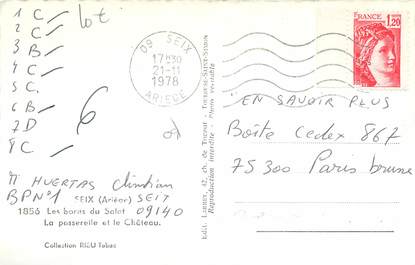 1 C
2 C
3 B
4 C
5 C.
6 B
7 D
8 C
lot
6
09 SEIX
17H30
21-11
1978
ARIEGE
FRANCE
1,20
EN SAVOIR PLUS
Boîte Cedex 867
75300 Paris brune
HUERTAS Christian
BP N°1 SEIX (Ariège) SEIT
1856 Les bords du Salat 09140
La passerelle et le Château.
Collection RIEU Tabac
Edit. Larrey, 42, ch. de Tournefeuille - Toulouse-Saint-Simon
Reproduction interdite - Photo véritable